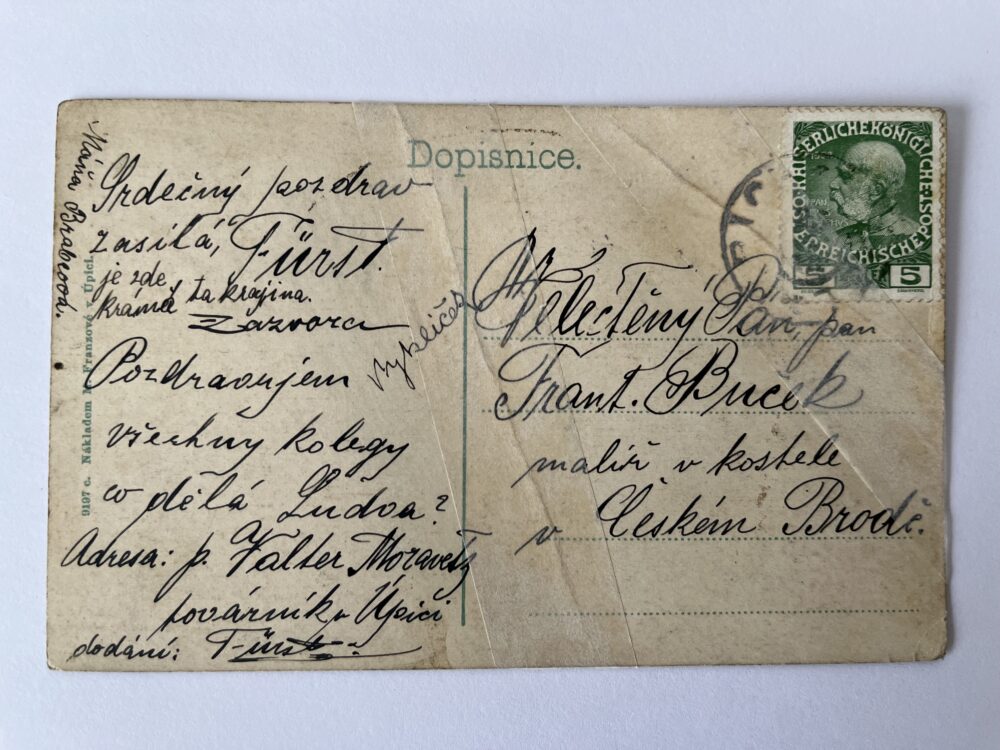 Dopisnice.
Srdečný pozdrav
zasílá, Fürst.
je zde
krásná ta krajina.
Zázvorca
Pozdravujem
všechny kolegy
co dělá Ludva?
Adresa: p. Valter Moravetz
továrník v Úpici
dodání: Fürst.
Máňa Brabcová.
9197 c. Nákladem M. Franzové v Úpici.
Velectěný Pan, pan
Frant. Buček
malíř v kostele
v Českém Brodě.
KAISERLICHEKÖNIGLICHE
ÖSTERREICHISCHEPOST
5
5